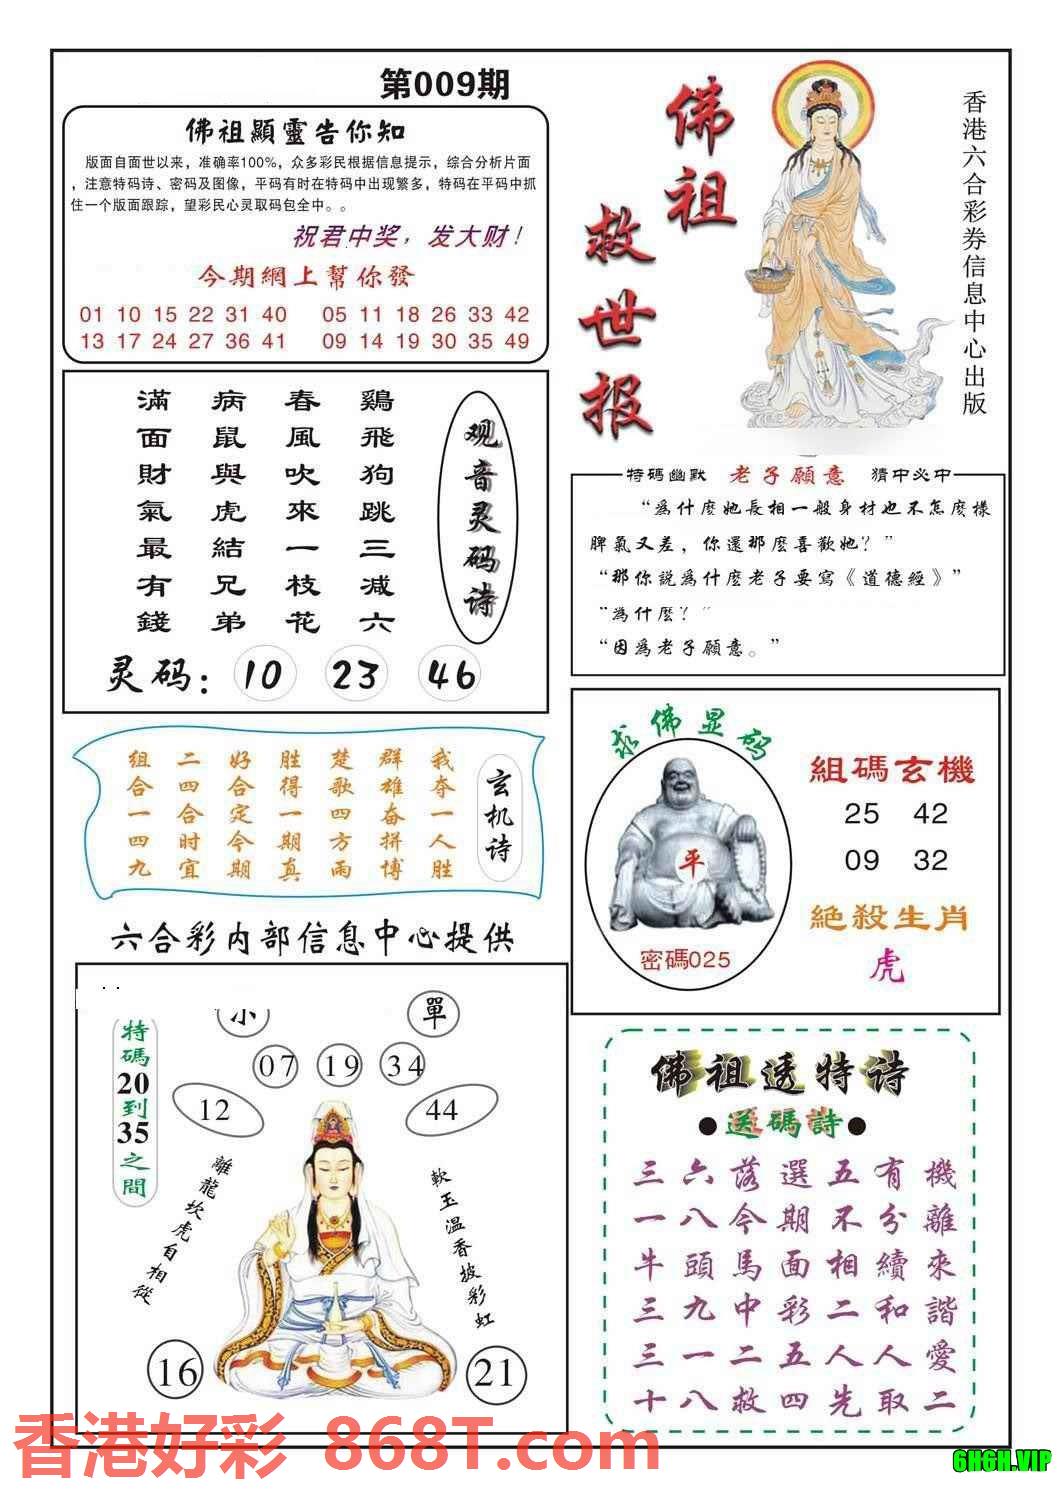 第009期
佛祖顯靈告你知
版面自面世以来，准确率100%，众多彩民根据信息提示，综合分析片面
，注意特码诗、密码及图像，平码有时在特码中出现繁多，特码在平码中抓
住一个版面跟踪，望彩民心灵取码包全中。。
祝君中奖，发大财！
今期網上幫你發
01 10 15 22 31 40 05 11 18 26 33 42
13 17 24 27 36 41 09 14 19 30 35 49
佛祖
救世报
香港六合彩券信息中心出版
观音灵码诗
鷄飛狗跳三减六
春風吹來一枝花
病鼠與虎結兄弟
滿面財氣最有錢
灵码：10 23 46
特碼幽默 老子願意 猜中必中
“為什麼她長相一般身材也不怎麼樣
脾氣又差，你還那麼喜歡她？”
“那你説為什麼老子要寫《道德經》”
“為什麼？”
“因為老子願意。”
玄机诗
我夺一人胜
群雄奋拼博
楚歌四方雨
胜得一期真
好合定今期
二四合时宜
组合一四九
求佛显码
平
密碼025
組碼玄機
25 42
09 32
絕殺生肖
虎
六合彩内部信息中心提供
單
07 19 34
12 44
特碼20到35之間
離龍坎虎自相從
軟玉温香披彩虹
16 21
佛祖透特诗
●送碼詩●
三六落選五有機
一八今期不分離
牛頭馬面相續來
三九中彩二和諧
三一二五人人愛
十八救四先取二
香港好彩 868T.com
6H6H.VIP